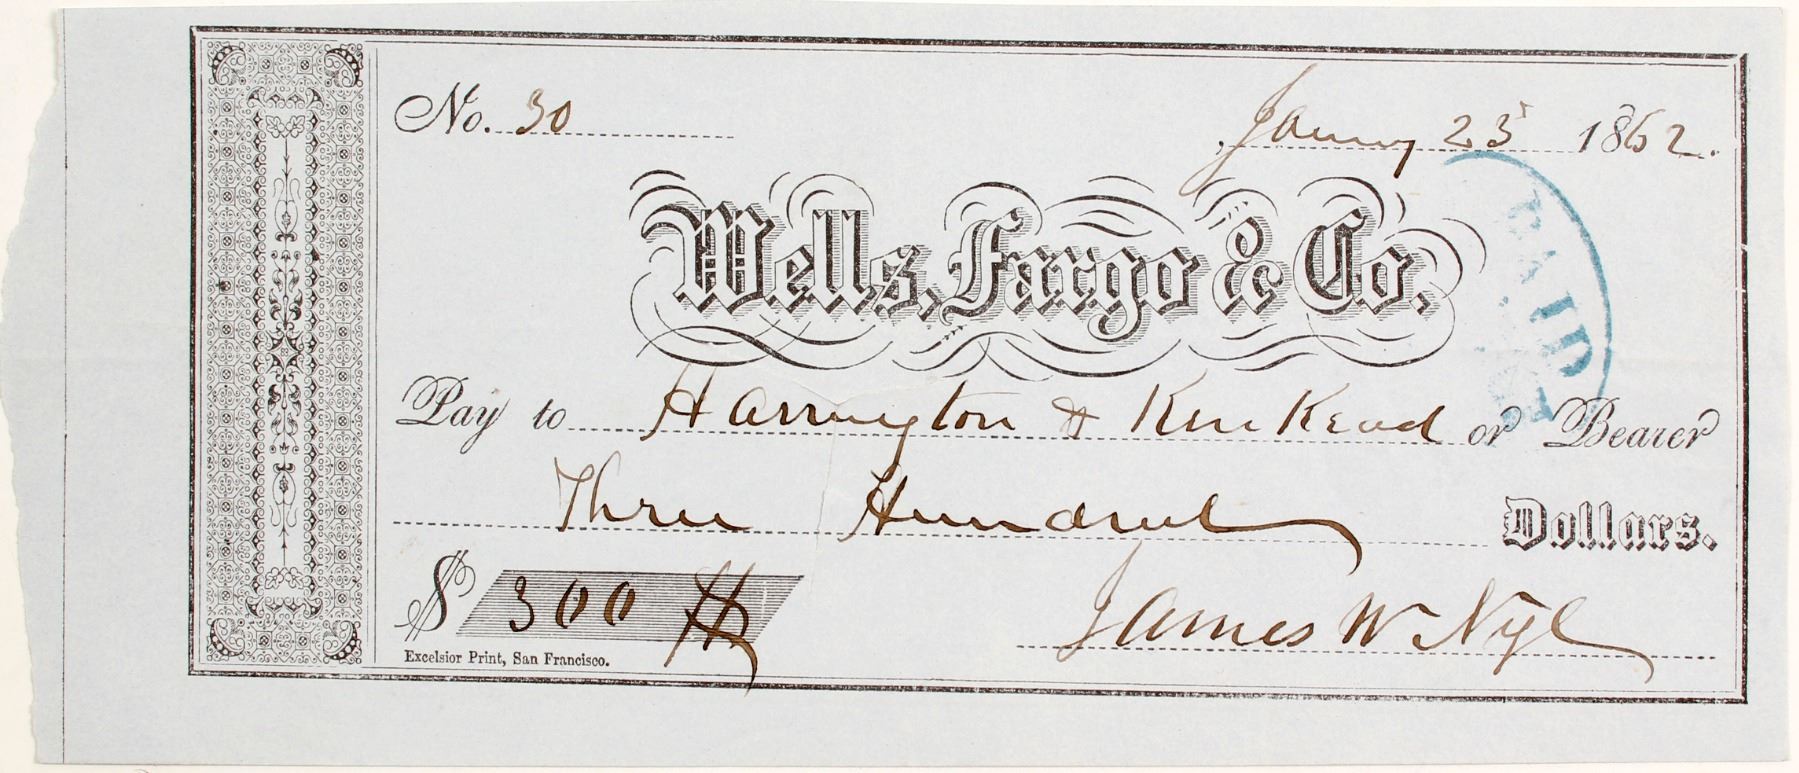 No. 30
January 25 1862.
Wells, Fargo & Co.
PAID
Pay to Harrington & KinKead or Bearer
Three Hundred Dollars.
$ 300
James W Nye
Excelsior Print, San Francisco.